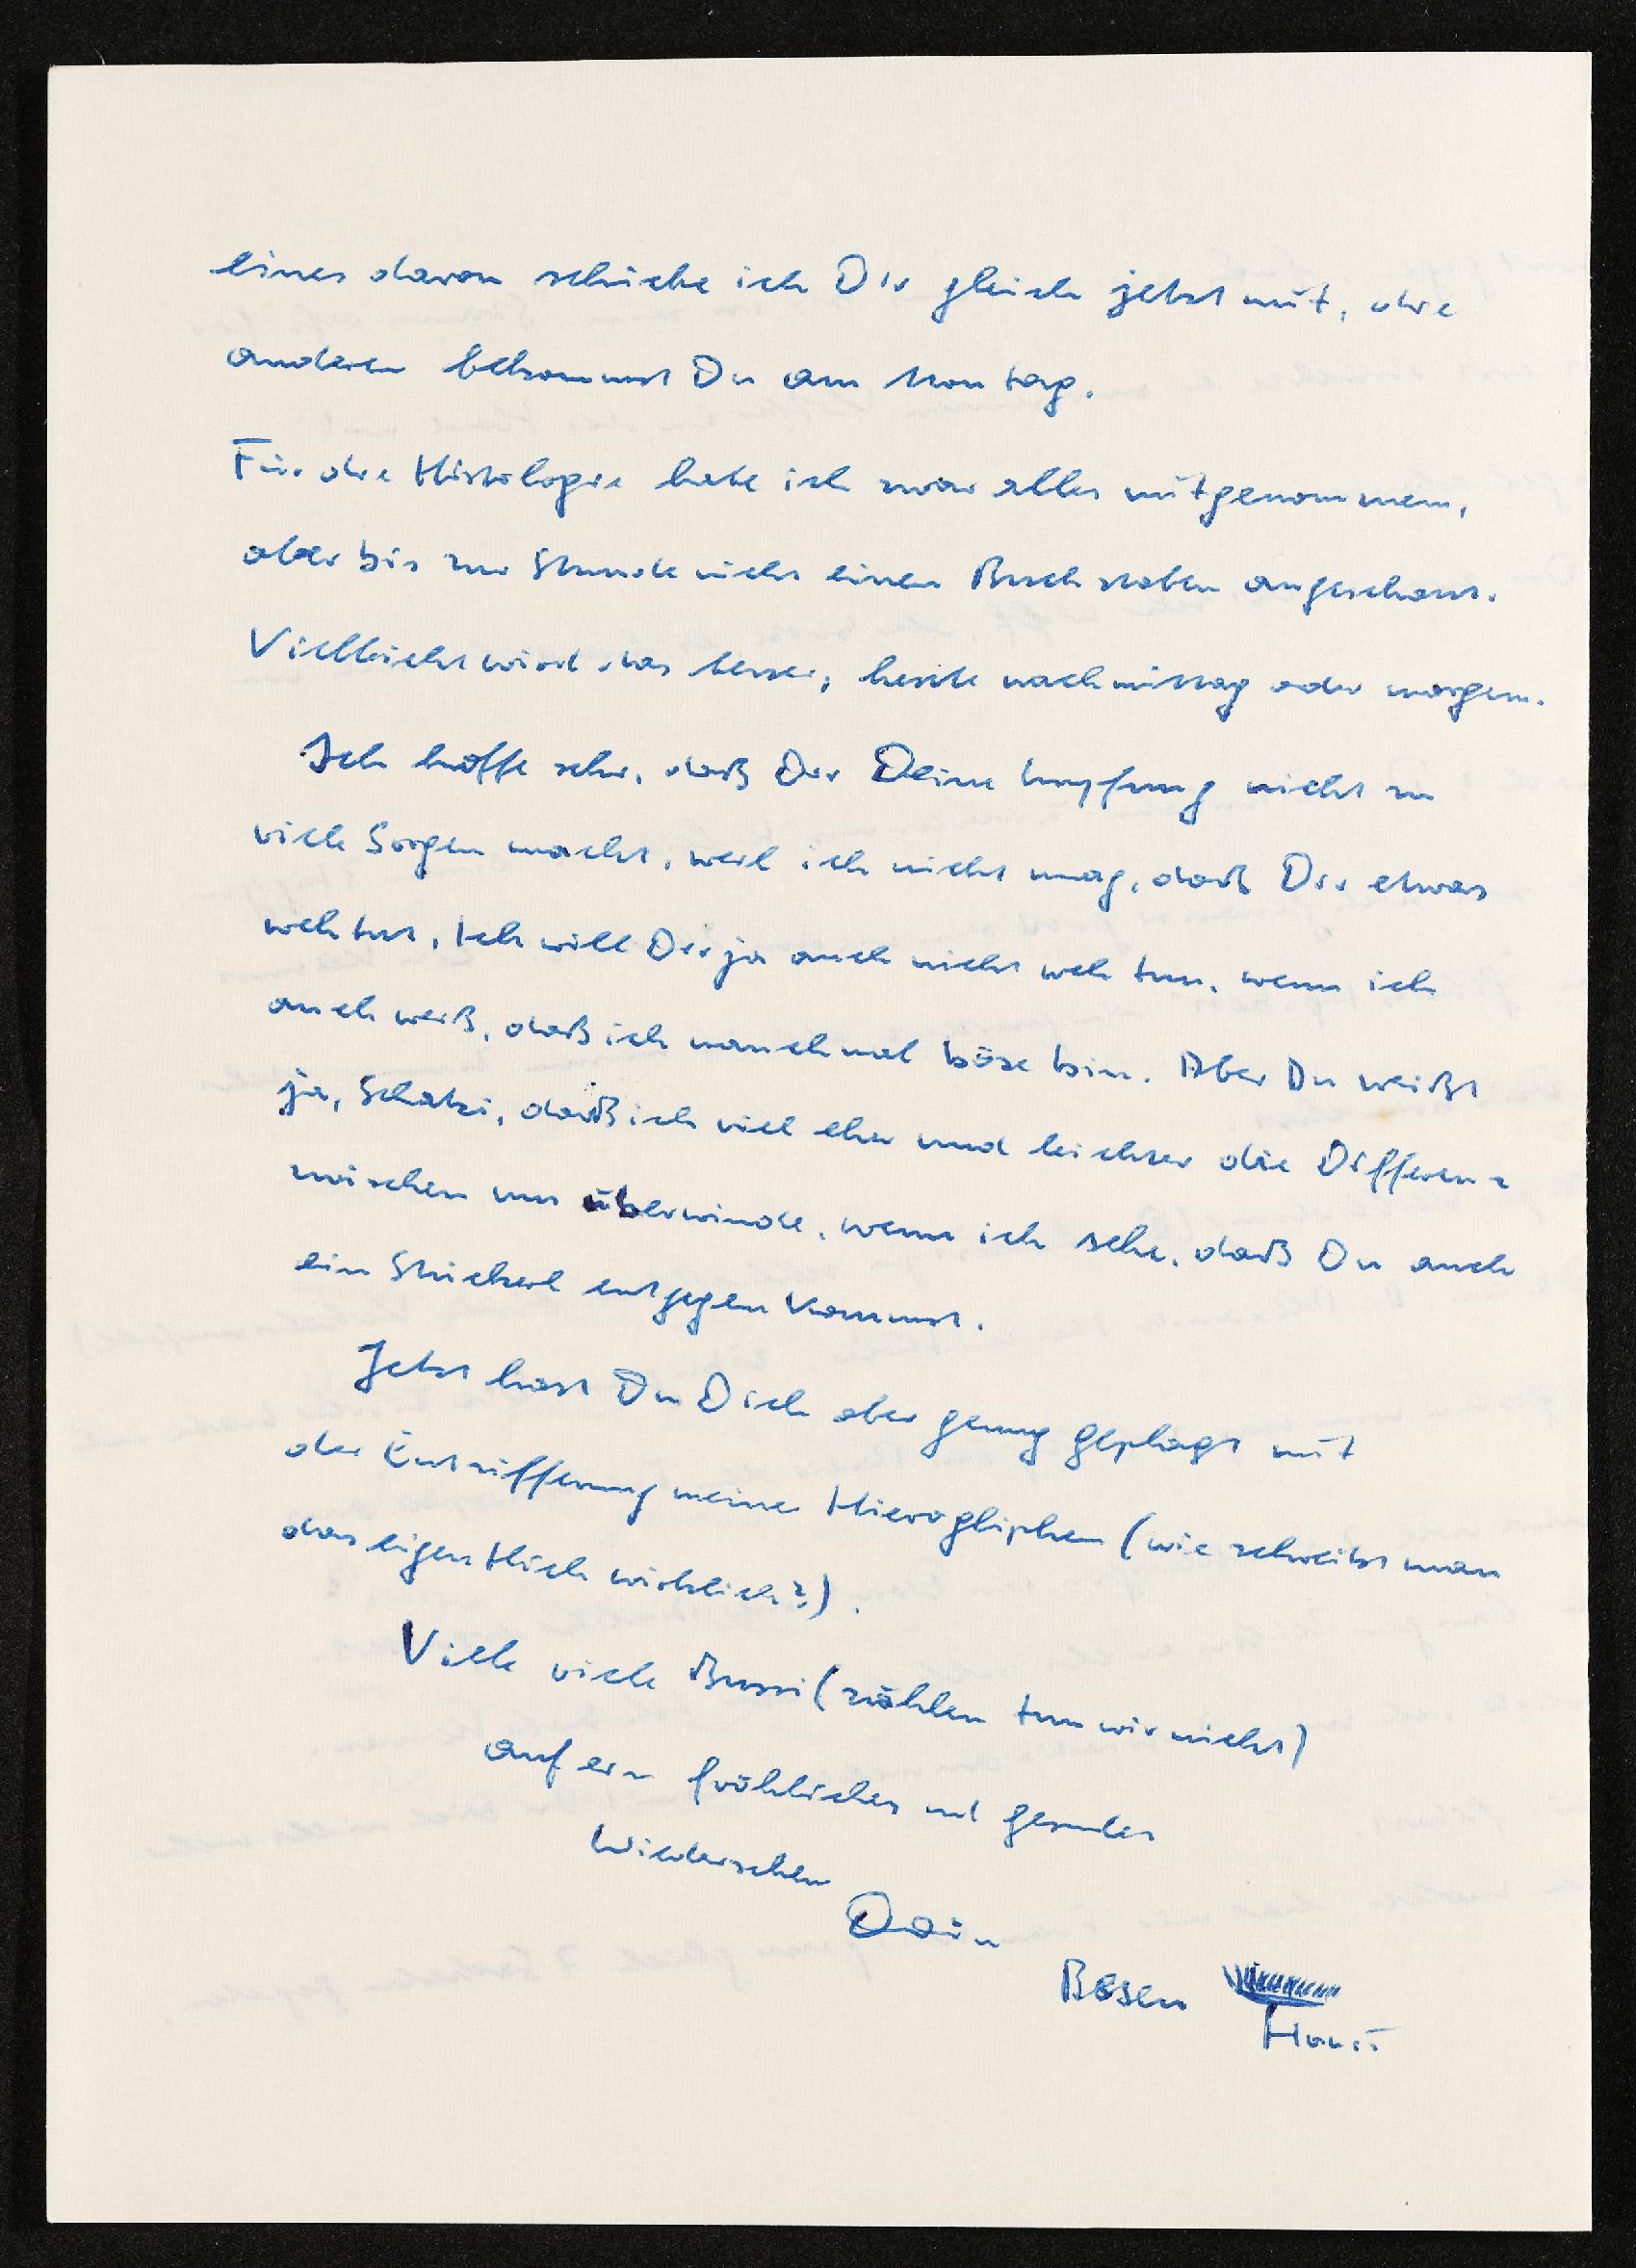 eines davon schicke ich Dir gleich jetzt mit, die
anderen bekommst Du am Montag.
Für die Histologie habe ich zwar alles mitgenommen,
aber bis zur Stunde nicht einen Buchstaben angeschaut.
Vielleicht wird das besser, heute nachmittag oder morgen.
Ich hoffe sehr, daß Dir Deine Impfung nicht zu
viele Sorgen macht, weil ich nicht mag, daß Dir etwas
weh tut. Ich will Dir ja auch nicht weh tun, wenn ich
auch weiß, daß ich manchmal böse bin. Aber Du weißt
ja, Schatzi, daß ich viel eher und leichter die Differenz
zwischen uns überwinde, wenn ich sehe, daß Du auch
ein Stückerl entgegen kommst.
Jetzt hast Du Dich aber genug geplagt mit
der Entzifferung meiner Hierogliphen (wie schreibt man
das eigentlich wirklich?).
Viele viele Bussi (zählen tun wir nicht)
auf ein fröhliches und gesundes
Wiedersehen
Dein
Besen